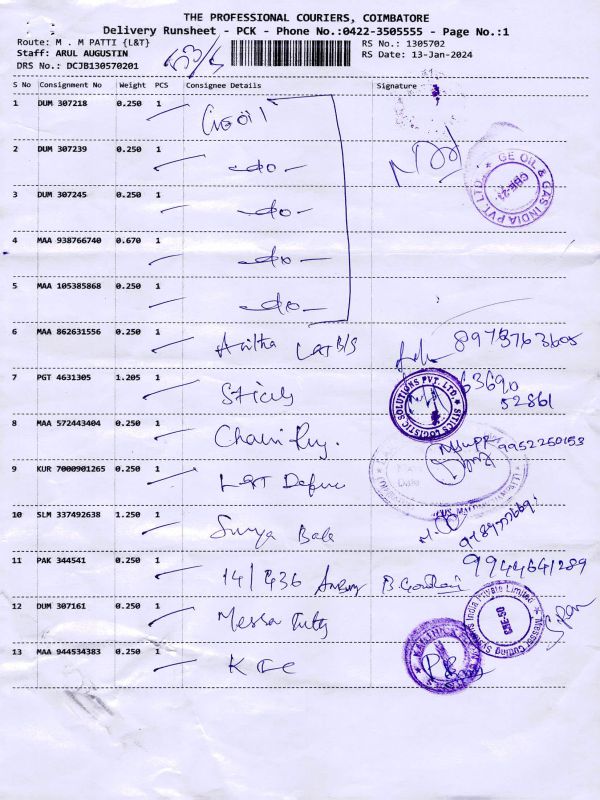 THE PROFESSIONAL COURIERS, COIMBATORE
Delivery Runsheet - PCK - Phone No.:0422-3505555 - Page No.:1
Route: M . M PATTI {L&T}
RS No.: 1305702
Staff: ARUL AUGUSTIN
RS Date: 13-Jan-2024
DRS No.: DCJB130570201
S No Consignment No Weight PCS Consignee Details Signature
1 DUM 307218 0.250 1
2 DUM 307239 0.250 1 -do-
GE OIL & GAS INDIA PVT. LTD.
3 DUM 307245 0.250 1 -do-
4 MAA 938766740 0.670 1 -do-
5 MAA 105385868 0.250 1 -do-
6 MAA 862631556 0.250 1 Anitha L&T B/S
7 PGT 4631305 1.205 1
63690
52861
SITICS LOGISTIC SOLUTIONS PVT. LTD.
8 MAA 572443404 0.250 1
9952250153
9 KUR 7000901265 0.250 1 L&T Defence
10 SLM 337492638 1.250 1 Surya Bala
11 PAK 344541 0.250 1 14/436
9944641289
12 DUM 307161 0.250 1 Messer Cutting
Messer Cutting Systems India Private Limited
13 MAA 944534383 0.250 1